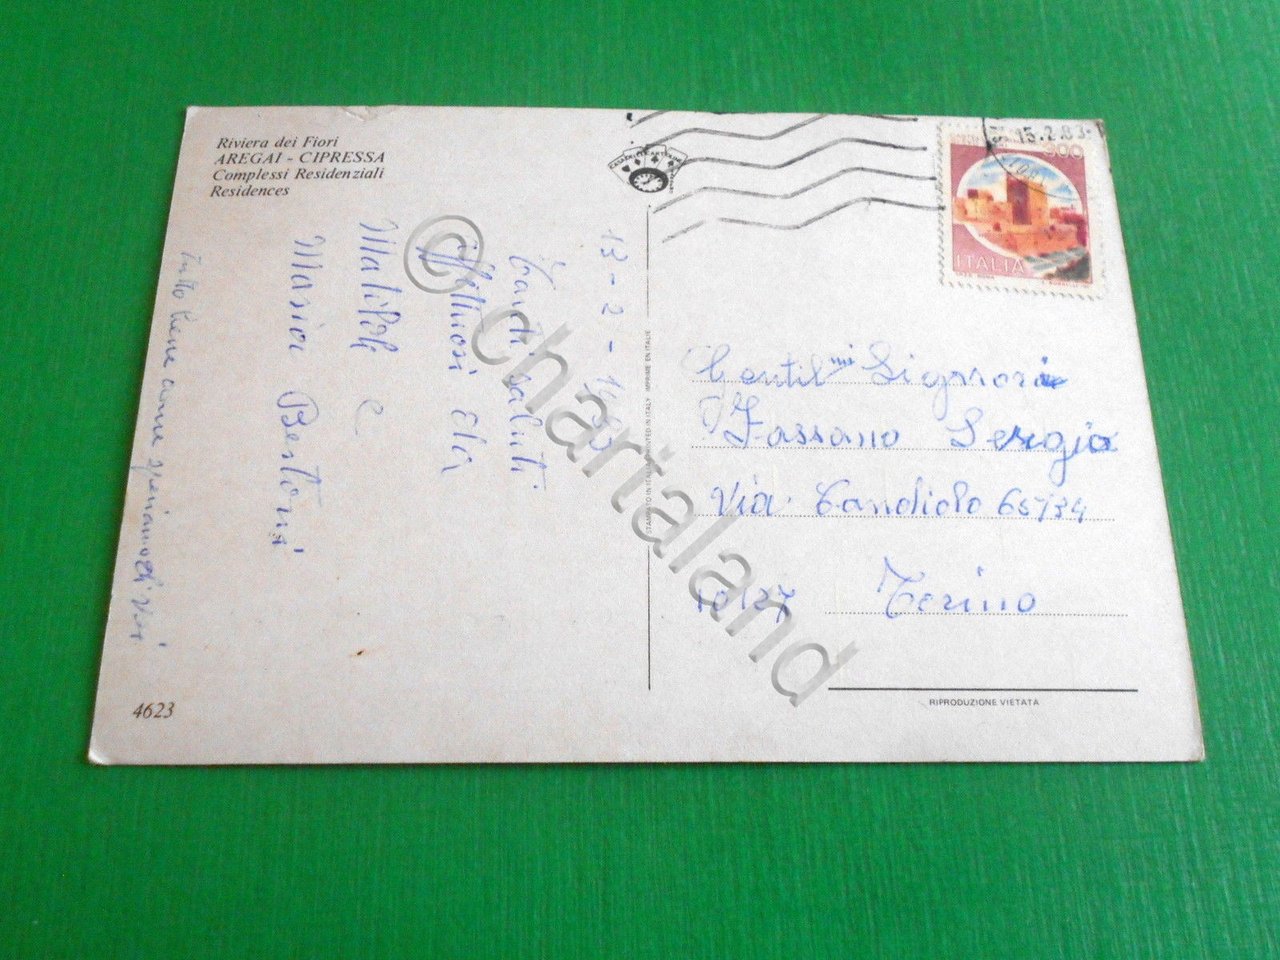 Riviera dei Fiori
AREGAI - CIPRESSA
Complessi Residenziali
Residences
13-2-1983
Cari saluti
Matilde e
Maria Bertoni
tutto bene come speriamo di voi
4623
STAMPATO IN ITALIA PRINTED IN ITALY IMPRIME EN ITALIE
15.2.83
300
ITALIA
Gentil.mi Signori
Fassano Sergio
Via Candiolo 65/34
10127 Torino
RIPRODUZIONE VIETATA
© chartaland